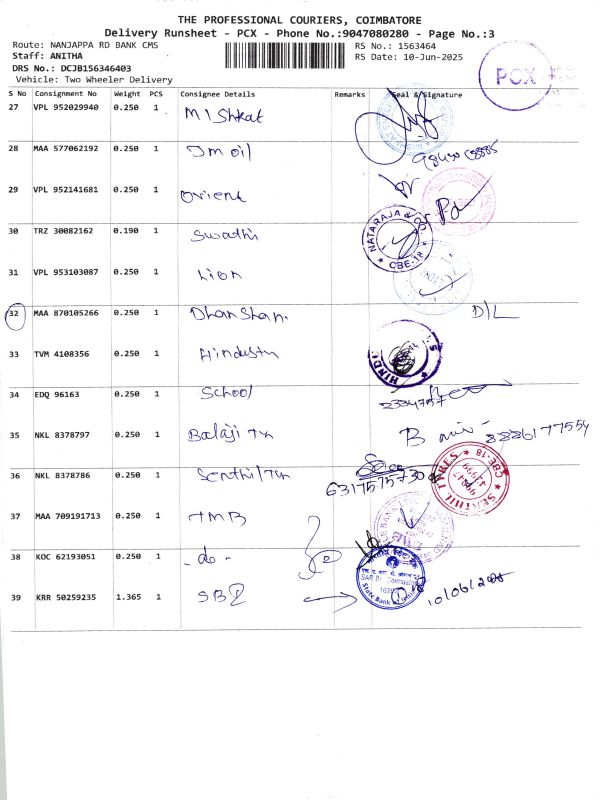 THE PROFESSIONAL COURIERS, COIMBATORE
Delivery Runsheet - PCX - Phone No.:9047080280 - Page No.:3
Route: NANJAPPA RD BANK CMS
RS No.: 1563464
Staff: ANITHA
RS Date: 10-Jun-2025
DRS No.: DCJB156346403
Vehicle: Two Wheeler Delivery
PCX
S No Consignment No Weight PCS Consignee Details Remarks Seal & Signature
27 VPL 952029940 0.250 1 M I Shkat
28 MAA 577062192 0.250 1 Jm oil
29 VPL 952141681 0.250 1 Orient
30 TRZ 30082162 0.190 1 Swathi
NATARAJA & CO. CBE-18
31 VPL 953103087 0.250 1 Lion
32 MAA 870105266 0.250 1 Dhanshan. D/L
33 TVM 4108356 0.250 1 Hindustn
34 EDQ 96163 0.250 1 School
35 NKL 8378797 0.250 1 Balaji Tn
36 NKL 8378786 0.250 1 Senthil Tn
SENTHIL TYRES CBE-18
37 MAA 709191713 0.250 1 TMB
38 KOC 62193051 0.250 1 - do -
39 KRR 50259235 1.365 1 SBI
State Bank of India